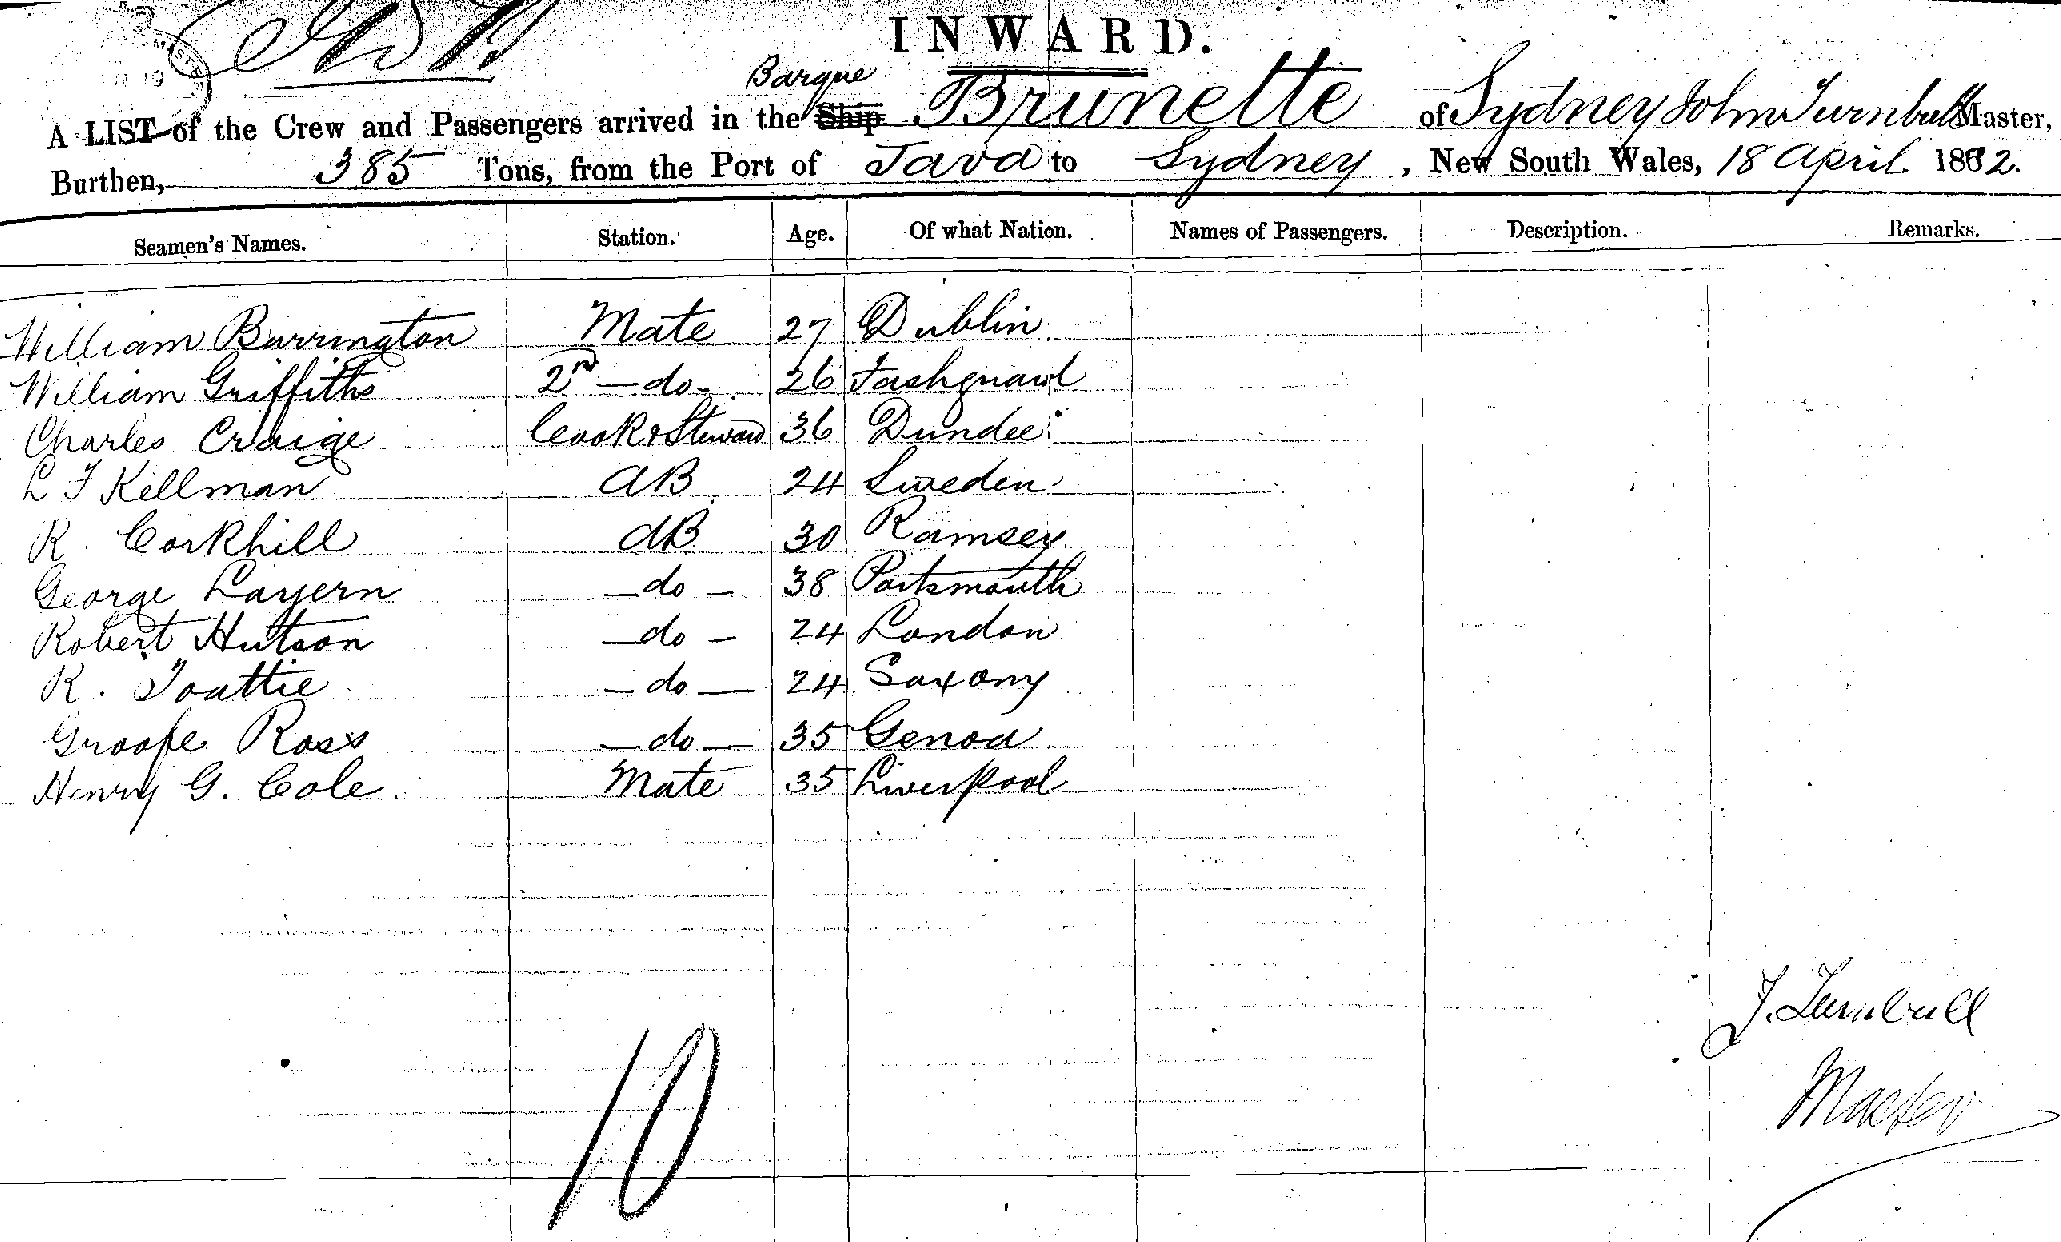 INWARD.
A LIST of the Crew and Passengers arrived in the Ship Barque Brunette of Sydney John Turnbull Master,
Burthen, 385 Tons, from the Port of Java to Sydney, New South Wales, 18 April 1882.
Seamen's Names. Station. Age. Of what Nation. Names of Passengers. Description. Remarks.
William Barrington Mate 27 Dublin
William Griffiths 2nd do 26 Fashguard
Charles Craige Cook & Steward 36 Dundee
L F Kellman AB 24 Sweden
R. Corkhill AB 30 Ramsey
George Layern do 38 Portsmouth
Robert Hutson do 24 London
R. Toattie do 24 Saxony
Groofe Ross do 35 Genoa
Henry G. Cole Mate 35 Liverpool
J. Turnbull
Master
10